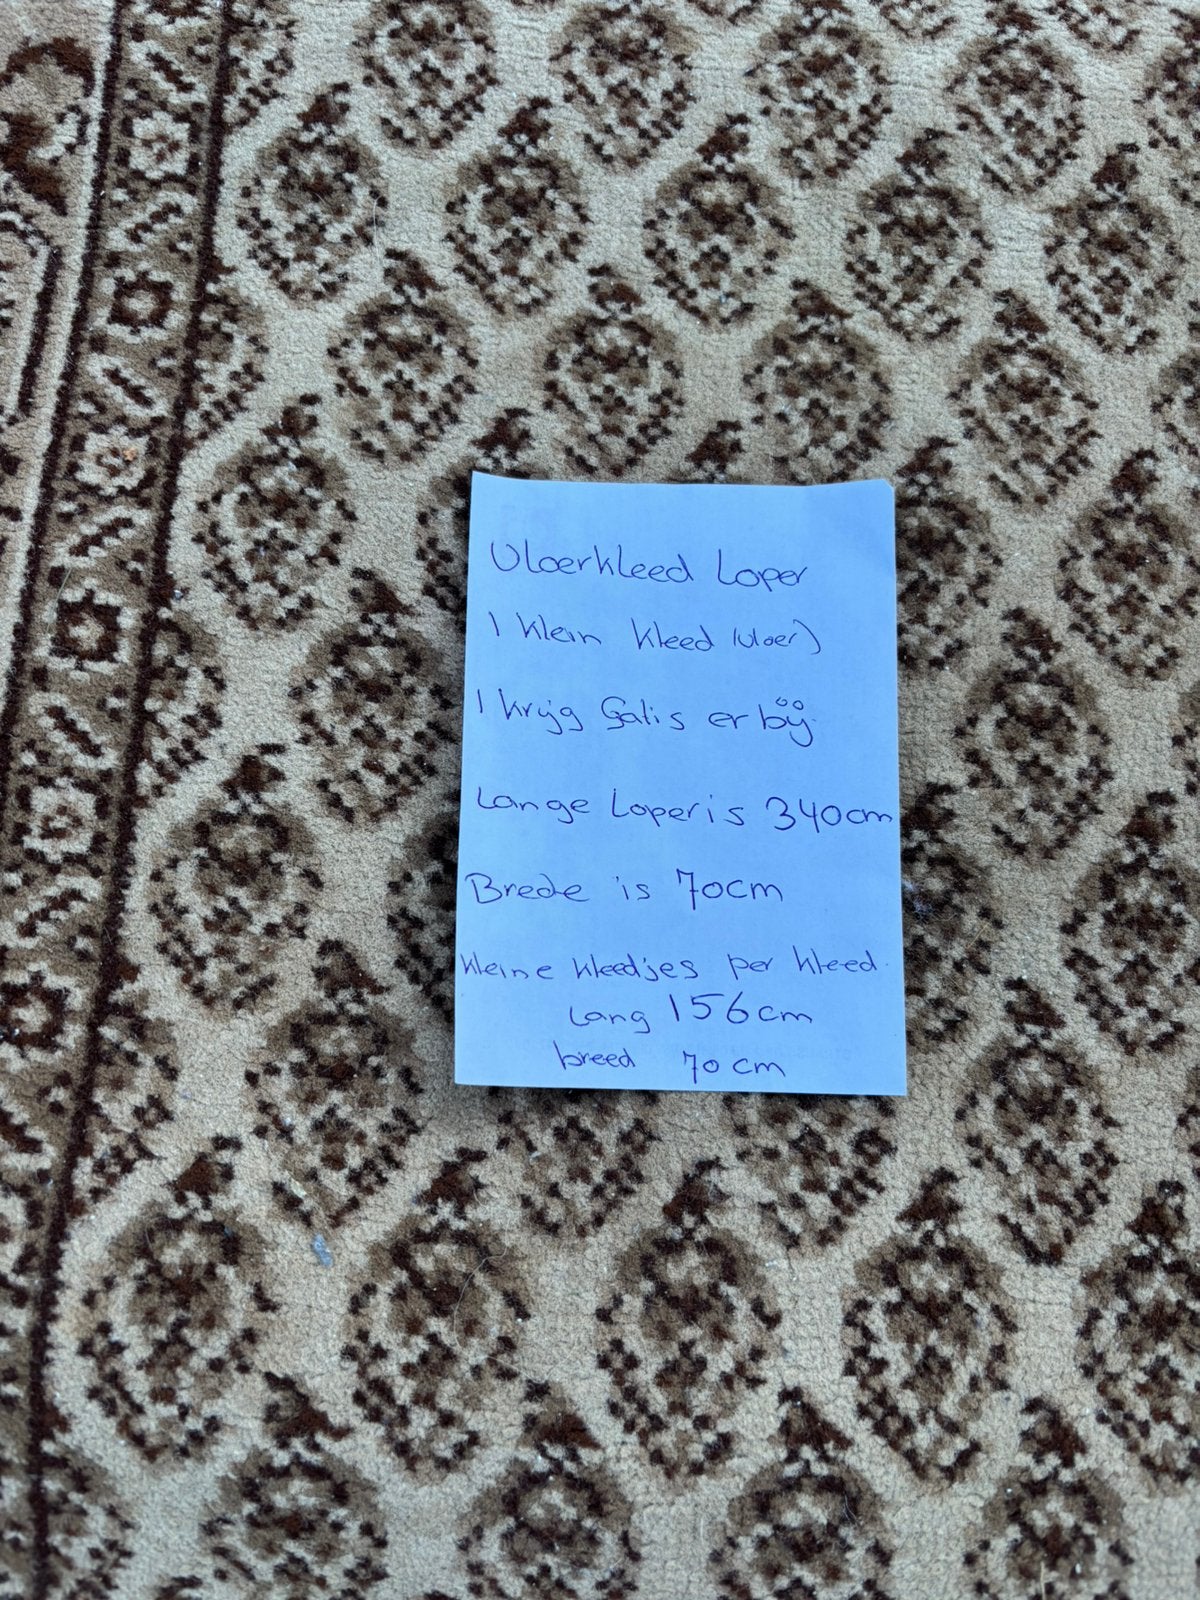 Vloerkleed Loper
1 klein kleed (vloer)
1 krijg Galis er bij
Lange Loper is 340cm
Brede is 70cm
kleine kleedjes per kleed.
Lang 156cm
breed 70 cm